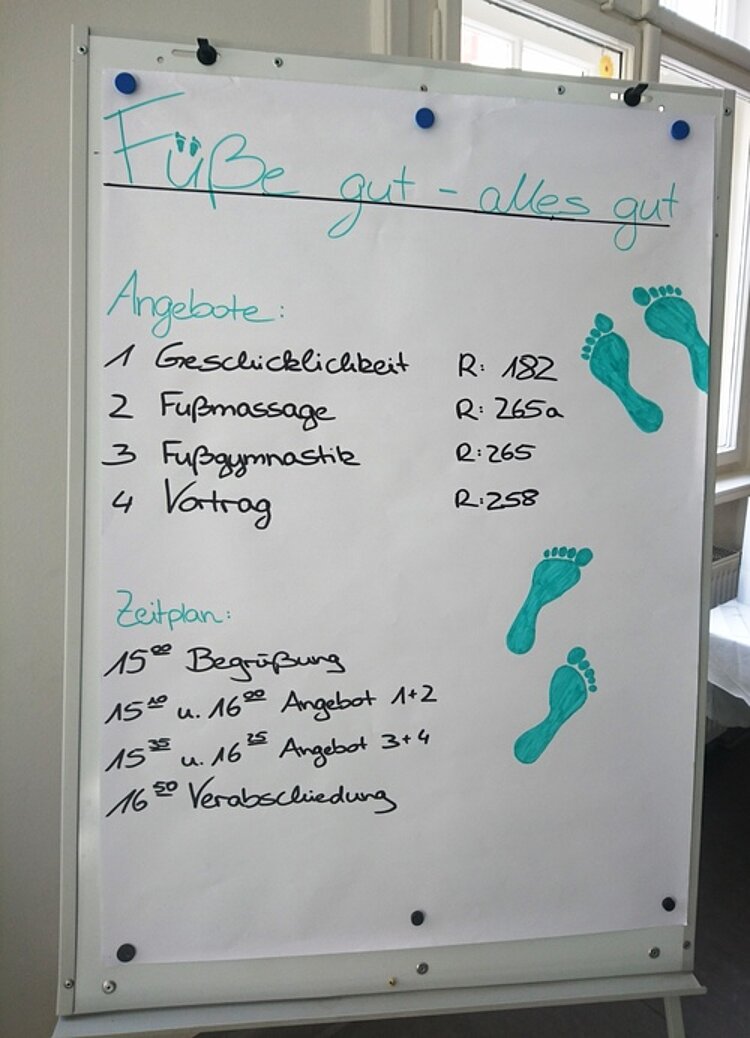 Füße gut - alles gut
Angebote:
1 Geschicklichkeit R: 182
2 Fußmassage R: 265a
3 Fußgymnastik R: 265
4 Vortrag R: 258
Zeitplan:
15⁰⁰ Begrüßung
15¹⁰ u. 16⁰⁰ Angebot 1+2
15³⁵ u. 16²⁵ Angebot 3+4
16⁵⁰ Verabschiedung